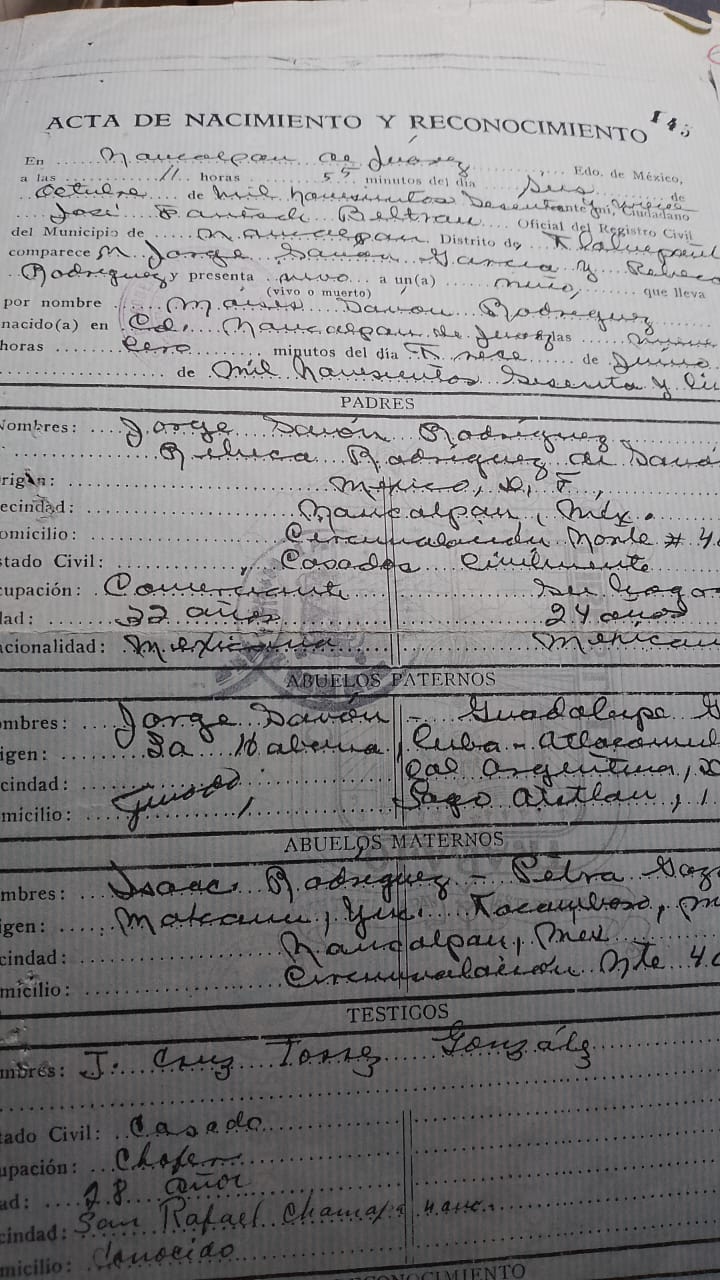 145
ACTA DE NACIMIENTO Y RECONOCIMIENTO
En Naucalpan de Juárez, Edo. de México,
a las 11 horas 55 minutos del día Seis de
Octubre de mil novecientos Sesenta y cinco ante mí, Ciudadano
José Beltran Oficial del Registro Civil
del Municipio de Naucalpan Distrito de Tlalnepantl
comparece n Jorge Davón García y Rebeca
Rodríguez y presenta vivo a un(a) niño, que lleva
(vivo o muerto)
por nombre Moisés Davon Rodríguez
nacido(a) en Cd. Naucalpan de Juárez las nueve
horas Cero minutos del día Trece de Junio
de mil novecientos Sesenta y ci
PADRES
Nombres: Jorge Davón Rodríguez
Rebeca Rodríguez de Davó
rigen: México, D, F,
ecindad: Naucalpan, Méx.
omicilio: Circunvalación Norte # 4
stado Civil: Casados Civilmente
upación: Comerciante Su hogar
dad: 22 años 24 años
acionalidad: Mexicana Mexican
ABUELOS PATERNOS
ombres: Jorge Davón - Guadalupe G
igen: La Habana, Cuba - Atlacomul
cindad: Cal Argentina,
micilio: Finado, Lago Aistlan, 1
ABUELOS MATERNOS
mbres: Isaac Rodríguez - Petra
igen: Yuc. Tacambaro, m
cindad: Naucalpan, Mex
micilio: Circunvalación Nte 4
TESTIGOS
mbres: J. Cruz Torrez González
tado Civil: Casado
upación: Chofer
ad: 28 años
cindad: San Rafael Chamapa nauc.
micilio: Conocido
RECONOCIMIENTO